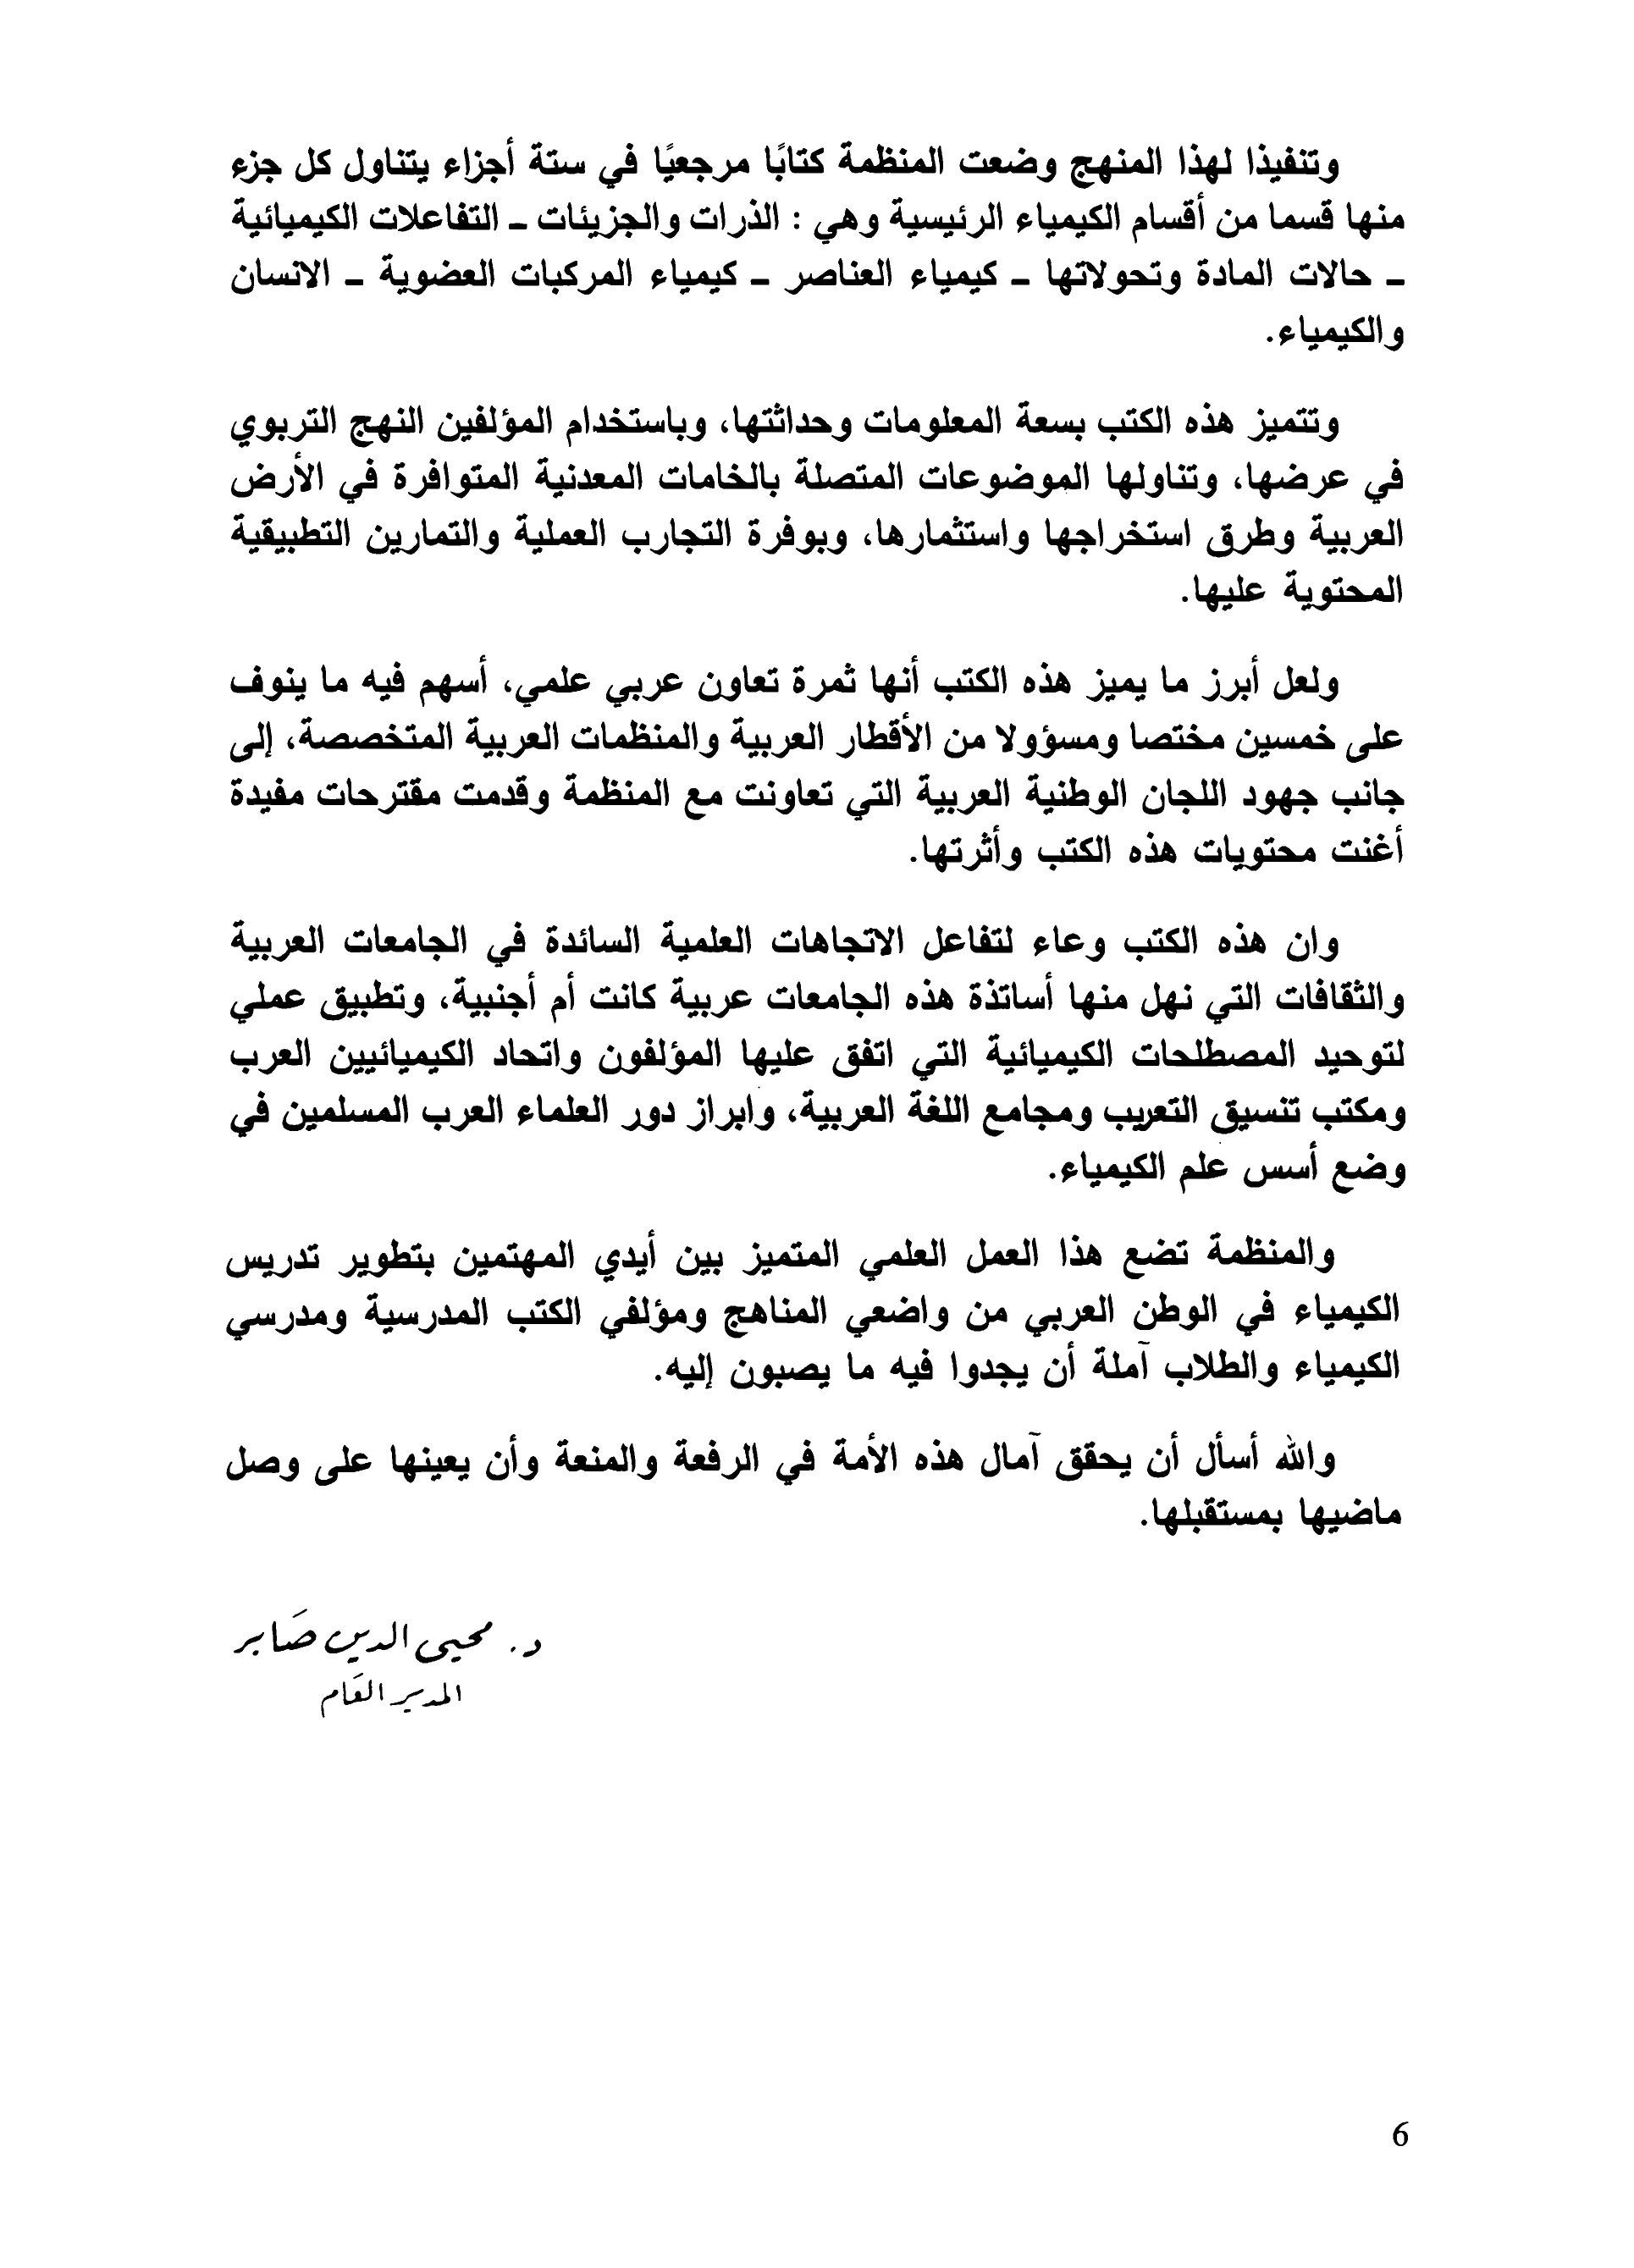 وتنفيذا لهذا المنهج وضعت المنظمة كتابًا مرجعيًا في ستة أجزاء يتناول كل جزء
منها قسما من أقسام الكيمياء الرئيسية وهي : الذرات والجزيئات ـ التفاعلات الكيميائية
ـ حالات المادة وتحولاتها ـ كيمياء العناصر ـ كيمياء المركبات العضوية ـ الانسان
والكيمياء.
وتتميز هذه الكتب بسعة المعلومات وحداثتها، وباستخدام المؤلفين النهج التربوي
في عرضها، وتناولها الموضوعات المتصلة بالخامات المعدنية المتوافرة في الأرض
العربية وطرق استخراجها واستثمارها، وبوفرة التجارب العملية والتمارين التطبيقية
المحتوية عليها.
ولعل أبرز ما يميز هذه الكتب أنها ثمرة تعاون عربي علمي، أسهم فيه ما ينوف
على خمسين مختصا ومسؤولا من الأقطار العربية والمنظمات العربية المتخصصة، إلى
جانب جهود اللجان الوطنية العربية التي تعاونت مع المنظمة وقدمت مقترحات مفيدة
أغنت محتويات هذه الكتب وأثرتها.
وان هذه الكتب وعاء لتفاعل الاتجاهات العلمية السائدة في الجامعات العربية
والثقافات التي نهل منها أساتذة هذه الجامعات عربية كانت أم أجنبية، وتطبيق عملي
لتوحيد المصطلحات الكيميائية التي اتفق عليها المؤلفون واتحاد الكيميائيين العرب
ومكتب تنسيق التعريب ومجامع اللغة العربية، وابراز دور العلماء العرب المسلمين في
وضع أسس علم الكيمياء.
والمنظمة تضع هذا العمل العلمي المتميز بين أيدي المهتمين بتطوير تدريس
الكيمياء في الوطن العربي من واضعي المناهج ومؤلفي الكتب المدرسية ومدرسي
الكيمياء والطلاب آملة أن يجدوا فيه ما يصبون إليه.
والله أسأل أن يحقق آمال هذه الأمة في الرفعة والمنعة وأن يعينها على وصل
ماضيها بمستقبلها.
د. محيى الدين صَابر
المدير العَام
6